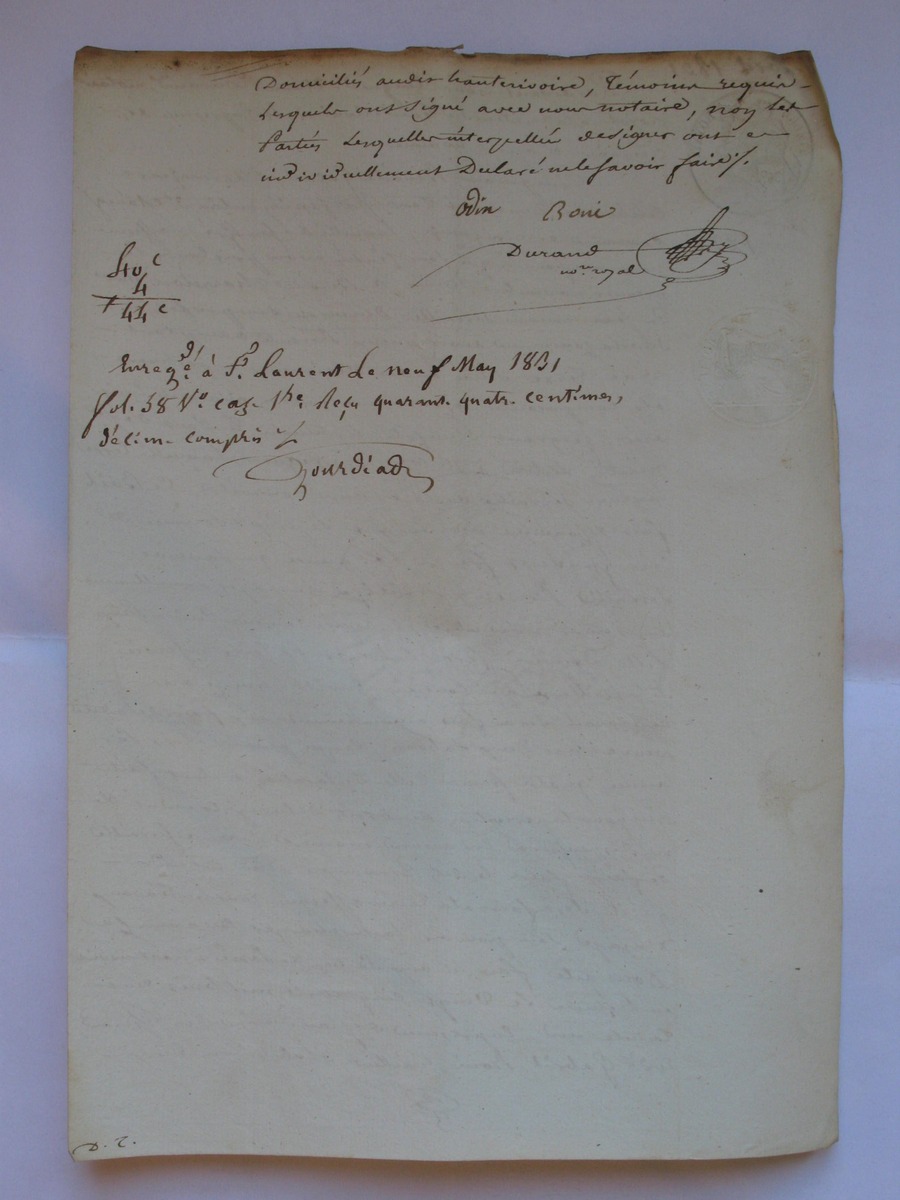 Domiciliés audit hauterivoire, Témoins requis
Lesquels ont signé avec nous notaire, non les
Parties Lesquelles interpellée de signer ont
individuellement Déclaré ne le savoir faire ./.
odin Boué
Durand
no.re royal
40 c
4
44 c
Enregé. à St. Laurent Le neuf May 1831
fol. 38 Vo. cas. 1re. Reçu quarant. quatr. centimes,
décim. compris
D. T.